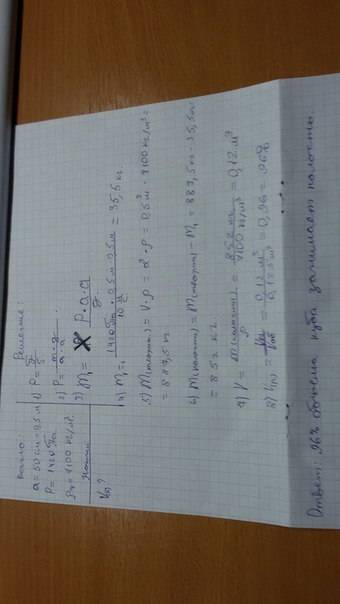 Дано:
a = 50 см = 0,5 м
P = 1420 Па
ρ = 7100 кг/м³
Найти:
V(п)?
Решение:
1) P = F/S
2) P = m·g/a·a
3) m₁ = P·a·a/g
4) m₁ = 1420 Па · 0,5 м · 0,5 м / 10 = 35,5 кг
5) m(полн.) = V·ρ = a³·ρ = 0,5³ · 7100 кг/м³ =
= 887,5 кг
6) m(полости) = m - m₁ = 887,5 кг - 35,5 кг
= 852 кг
7) V = m(полости)/ρ = 852 кг/7100 кг/м³ = 0,12 м³
8) V(п) = 0,12 м³/0,125 м³ = 0,96 = 96%
Ответ: 96% объема куба занимает полость.